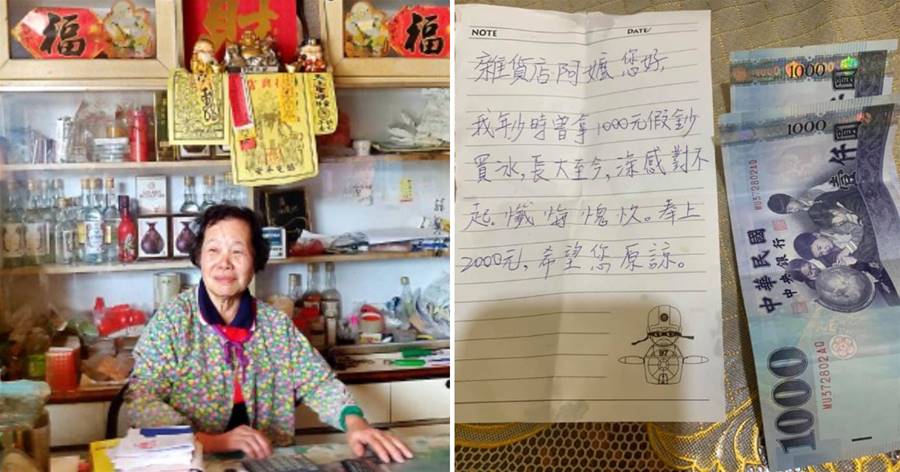 福
財
福
NOTE DATE/
雜貨店阿嬤您好,
我年少時曾拿1000元假鈔
買冰,長大至今,深感對不
起。懺悔愧疚。奉上
2000元,希望您原諒。
97
1000
1000 壹仟圓
WU372802AQ
中華民國
中央銀行
1000
WU372802AQ